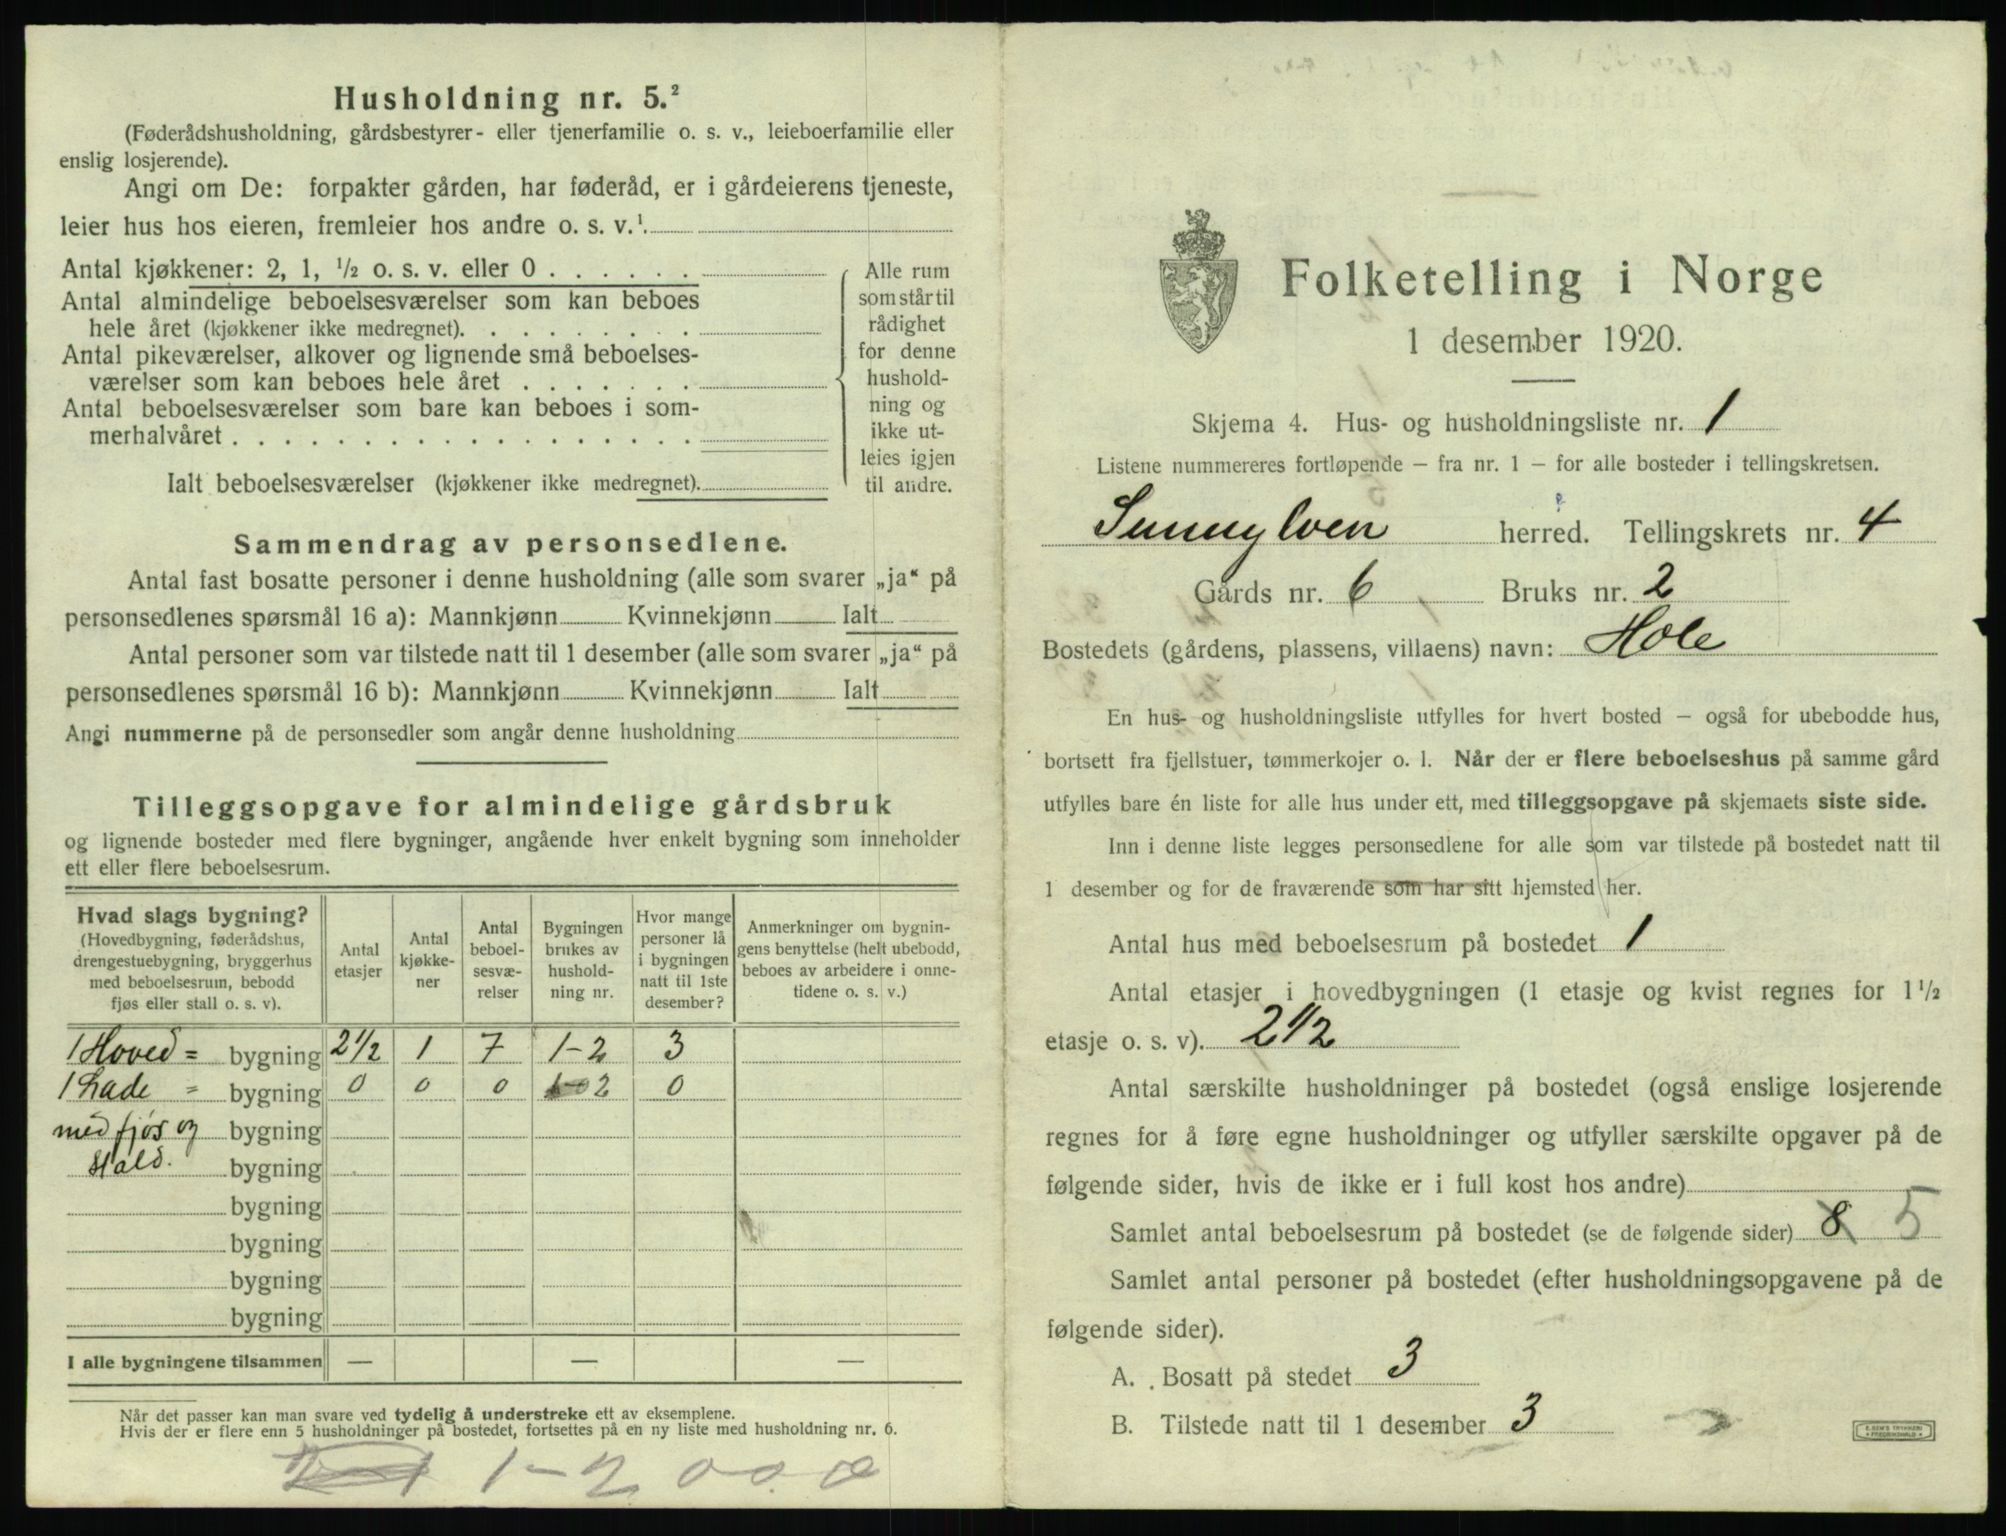 Husholdning nr. 5.²
(Føderådshusholdning, gårdsbestyrer- eller tjenerfamilie o. s. v., leieboerfamilie eller
enslig losjerende).
Angi om De: forpakter gården, har føderåd, er i gårdeierens tjeneste,
leier hus hos eieren, fremleier hos andre o. s. v.¹
Antal kjøkkener: 2, 1, ½ o. s. v. eller 0 . . . . . .
Antal almindelige beboelsesværelser som kan beboes
hele året (kjøkkener ikke medregnet). . . . . . . .
Antal pikeværelser, alkover og lignende små beboelses-
værelser som kan beboes hele året . . . . . . .
Antal beboelsesværelser som bare kan beboes i som-
merhalvåret . . . . . . . . . . . . . . . . . .
Ialt beboelsesværelser (kjøkkener ikke medregnet).
Alle rum
som står til
rådighet
for denne
hushold-
ning og
ikke ut-
leies igjen
til andre.
Sammendrag av personsedlene.
Antal fast bosatte personer i denne husholdning (alle som svarer „ja“ på
personsedlenes spørsmål 16 a): Mannkjønn Kvinnekjønn Ialt
Antal personer som var tilstede natt til 1 desember (alle som svarer „ja“ på
personsedlenes spørsmål 16 b): Mannkjønn Kvinnekjønn Ialt
Angi nummerne på de personsedler som angår denne husholdning
Tilleggsopgave for almindelige gårdsbruk
og lignende bosteder med flere bygninger, angående hver enkelt bygning som inneholder
ett eller flere beboelsesrum.
Hvad slags bygning?
(Hovedbygning, føderådshus,
drengestuebygning, bryggerhus
med beboelsesrum, bebodd
fjøs eller stall o. s. v).
Antal
etasjer
Antal
kjøkke-
ner
Antal
beboel-
sesvæ-
relser
Bygningen
brukes av
hushold-
ning nr.
Hvor mange
personer lå
i bygningen
natt til 1ste
desember?
Anmerkninger om bygnin-
gens benyttelse (helt ubebodd,
beboes av arbeidere i onne-
tidene o. s. v.)
1 Hoved = bygning 2½ 1 7 1-2 3
1 Lade = bygning 0 0 0 2 0
med fjøs og bygning
Stald. bygning
bygning
bygning
bygning
bygning
I alle bygningene tilsammen — — —
Når det passer kan man svare ved tydelig å understreke ett av eksemplene.
Hvis der er flere enn 5 husholdninger på bostedet, fortsettes på en ny liste med husholdning nr. 6.
1-2 0 0. 0
Folketelling i Norge
1 desember 1920.
Skjema 4. Hus- og husholdningsliste nr. 1
Listene nummereres fortløpende — fra nr. 1 — for alle bosteder i tellingskretsen.
Sunnylven herred. Tellingskrets nr. 4
Gårds nr. 6 Bruks nr. 2
Bostedets (gårdens, plassens, villaens) navn: Hole
En hus- og husholdningsliste utfylles for hvert bosted — også for ubebodde hus,
bortsett fra fjellstuer, tømmerkojer o. l. Når der er flere beboelseshus på samme gård
utfylles bare én liste for alle hus under ett, med tilleggsopgave på skjemaets siste side.
Inn i denne liste legges personsedlene for alle som var tilstede på bostedet natt til
1 desember og for de fraværende som har sitt hjemsted her.
Antal hus med beboelsesrum på bostedet 1
Antal etasjer i hovedbygningen (1 etasje og kvist regnes for 1½
etasje o. s. v). 2½
Antal særskilte husholdninger på bostedet (også enslige losjerende
regnes for å føre egne husholdninger og utfyller særskilte opgaver på de
følgende sider, hvis de ikke er i full kost hos andre)
Samlet antal beboelsesrum på bostedet (se de følgende sider) 8 5
Samlet antal personer på bostedet (efter husholdningsopgavene på de
følgende sider).
A. Bosatt på stedet 3
B. Tilstede natt til 1 desember 3